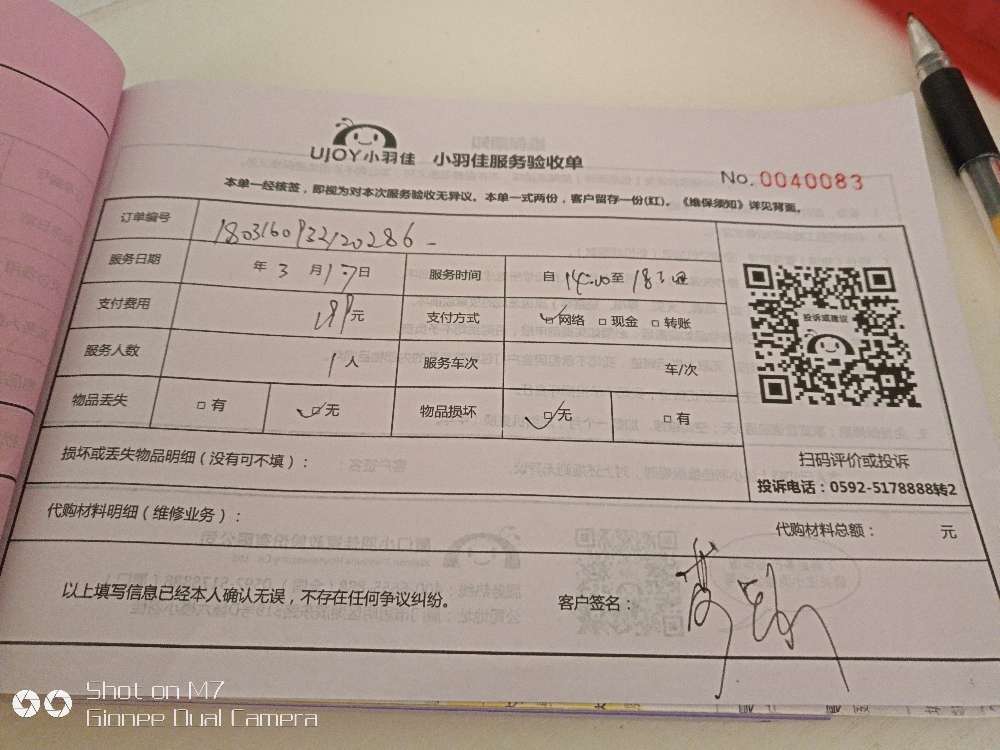 UJOY小羽佳 小羽佳服务验收单
No.0040083
本单一经核签，即视为对本次服务验收无异议。本单一式两份，客户留存一份(红)。《维保须知》详见背面。
订单编号
服务日期 年 3 月 17 日 服务时间 自 14:00 至
支付费用 元 支付方式 网络 现金 转账
服务人数 1 人 服务车次 车/次
物品丢失 有 无 物品损坏 无 有
投诉或建议
扫码评价或投诉
投诉电话：0592-5178888转2
损坏或丢失物品明细（没有可不填）：
代购材料明细（维修业务）： 代购材料总额： 元
以上填写信息已经本人确认无误，不存在任何争议纠纷。 客户签名：
Shot on M7
Gionee Dual Camera